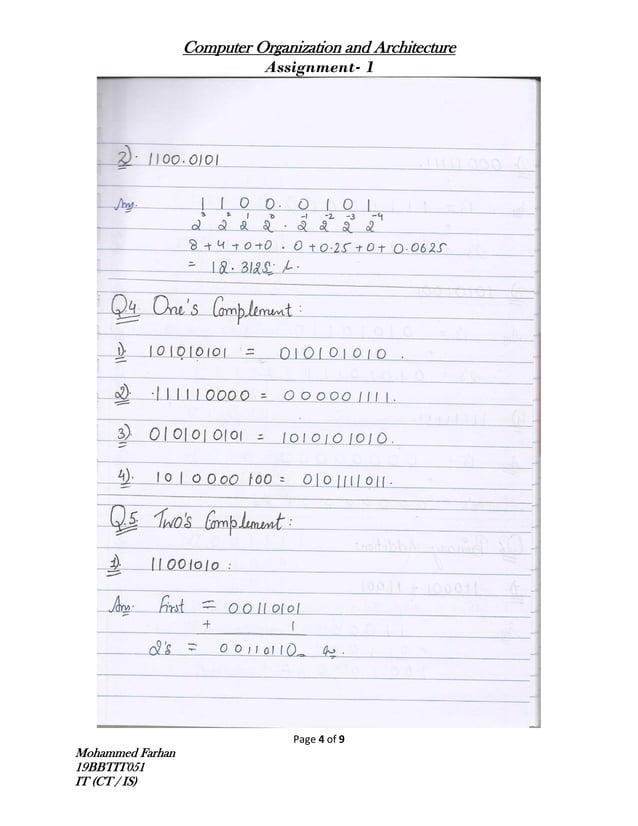 Computer Organization and Architecture
Assignment- 1
2). 1100.0101
Ans. 1 1 0 0. 0 1 0 1
2³ 2² 2¹ 2⁰ . 2⁻¹ 2⁻² 2⁻³ 2⁻⁴
8 + 4 + 0 + 0 . 0 + 0.25 + 0 + 0.0625
= 12.3125
Q4 One's Complement :
1). 101010101 = 010101010 .
2). 111110000 = 000001111.
3). 0101010101 = 1010101010.
4). 1010000100 = 0101111011.
Q.5. Two's Complement :
1). 11001010 :
Ans. First = 00110101
+ 1
2's = 00110110
Page 4 of 9
Mohammed Farhan
19BBTIT051
IT (CT / IS)